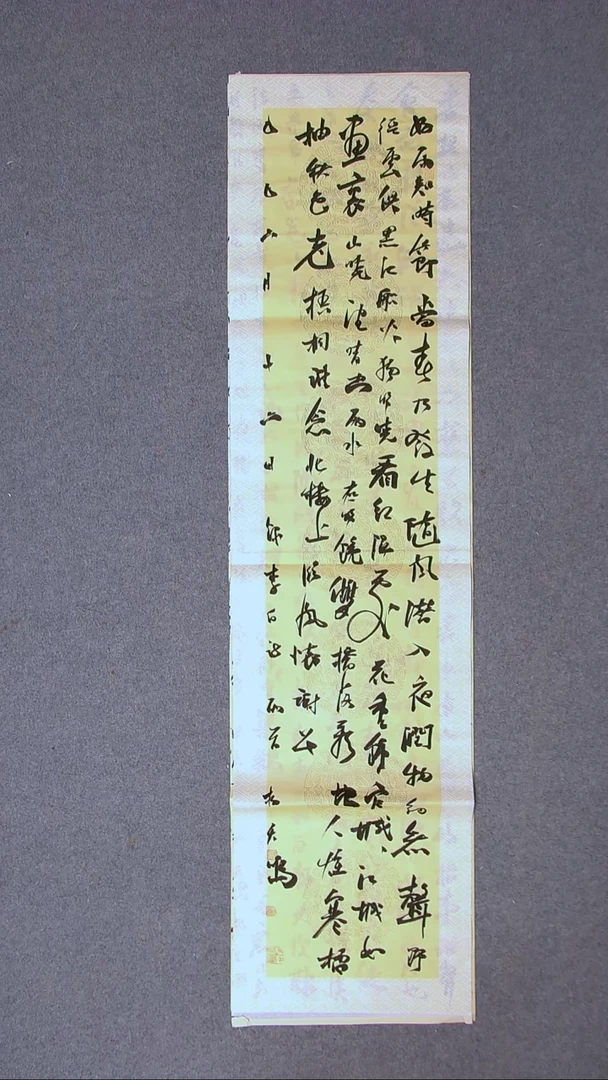 好雨知時節當春乃發生隨風潛入夜潤物細無聲野
徑雲俱黑江船火獨明曉看紅濕處花重錦官城江城如
畫裏山曉望晴空兩水夾明鏡雙橋落彩虹人烟寒橘
柚秋色老梧桐誰念北樓上臨風懷謝公
乙巳六月十六日錄李白詩兩首